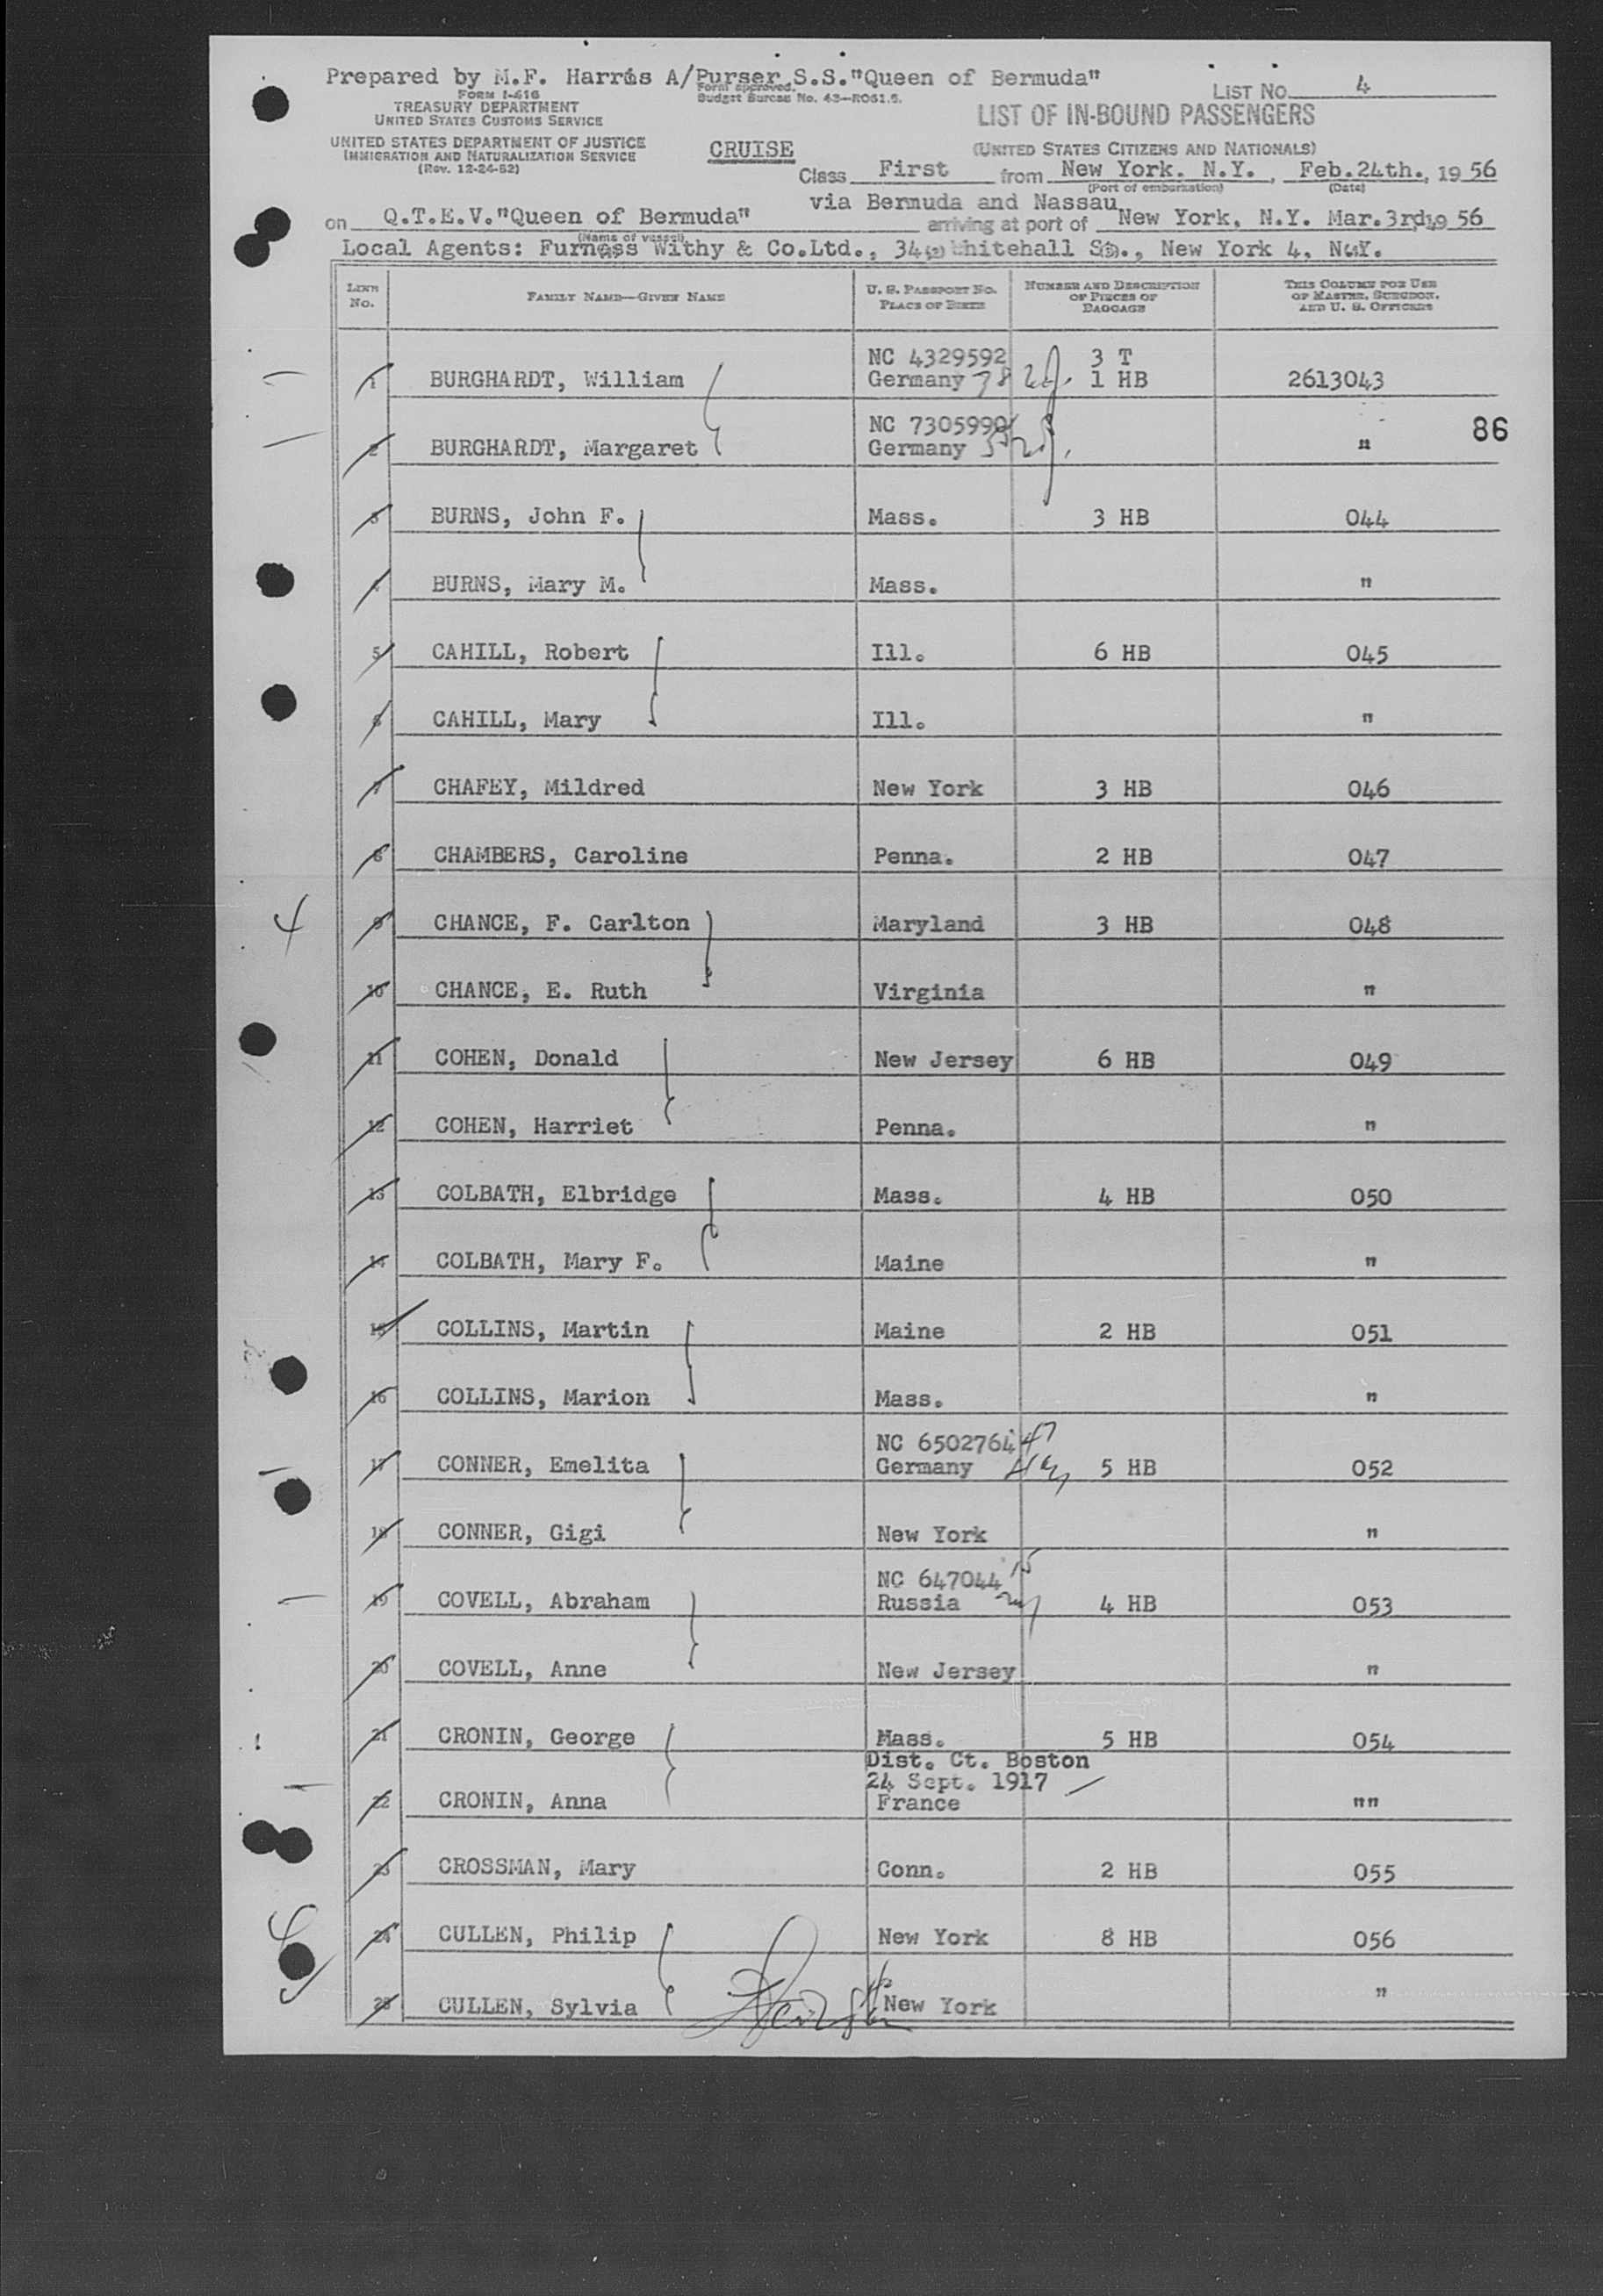 Prepared by M.F. Harris A/Purser S.S."Queen of Bermuda"
FORM I-416
TREASURY DEPARTMENT
UNITED STATES CUSTOMS SERVICE
UNITED STATES DEPARTMENT OF JUSTICE
IMMIGRATION AND NATURALIZATION SERVICE
(Rev. 12-24-52)
Form approved.
Budget Bureau No. 43—R051.5.
LIST NO. 4
LIST OF IN-BOUND PASSENGERS
(UNITED STATES CITIZENS AND NATIONALS)
CRUISE
Class First from New York. N.Y., Feb.24th., 19 56
(Port of embarkation) (Date)
via Bermuda and Nassau
on Q.T.E.V."Queen of Bermuda" arriving at port of New York, N.Y. Mar.3rd, 19 56
(Name of vessel)
Local Agents: Furness Withy & Co.Ltd., 34 Whitehall St., New York 4, N.Y.
LINE NO. FAMILY NAME—GIVEN NAME U. S. PASSPORT NO. PLACE OF BIRTH NUMBER AND DESCRIPTION OF PIECES OF BAGGAGE THIS COLUMN FOR USE OF MASTER, SURGEON, AND U. S. OFFICERS
NC 4329592 3 T
1 BURGHARDT, William Germany 1 HB 2613043
NC 7305990 86
2 BURGHARDT, Margaret Germany "
3 BURNS, John F. Mass. 3 HB 044
4 BURNS, Mary M. Mass. "
5 CAHILL, Robert Ill. 6 HB 045
6 CAHILL, Mary Ill. "
7 CHAFEY, Mildred New York 3 HB 046
8 CHAMBERS, Caroline Penna. 2 HB 047
4 9 CHANCE, F. Carlton Maryland 3 HB 048
10 CHANCE, E. Ruth Virginia "
11 COHEN, Donald New Jersey 6 HB 049
12 COHEN, Harriet Penna. "
13 COLBATH, Elbridge Mass. 4 HB 050
14 COLBATH, Mary F. Maine "
15 COLLINS, Martin Maine 2 HB 051
16 COLLINS, Marion Mass. "
NC 6502764
17 CONNER, Emelita Germany 5 HB 052
18 CONNER, Gigi New York "
NC 647044
19 COVELL, Abraham Russia 4 HB 053
20 COVELL, Anne New Jersey "
21 CRONIN, George Mass. 5 HB 054
Dist. Ct. Boston
24 Sept. 1917
22 CRONIN, Anna France ""
23 CROSSMAN, Mary Conn. 2 HB 055
24 CULLEN, Philip New York 8 HB 056
25 CULLEN, Sylvia New York "